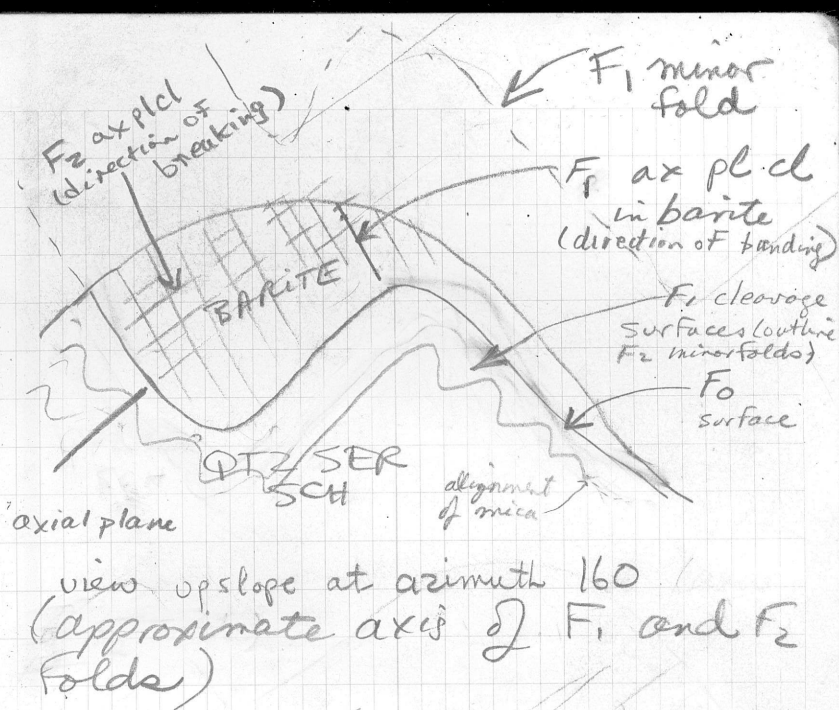 F₁ minor
fold
F₂ ax pl cl
(direction of
breaking)
F₁ ax pl cl
in barite
(direction of banding)
BARITE
F₁ cleavage
surfaces (outline
F₂ minor folds)
F₀
surface
QTZ SER
SCH
alignment
of mica
axial plane
view upslope at azimuth 160
(approximate axis of F₁ and F₂
folds)